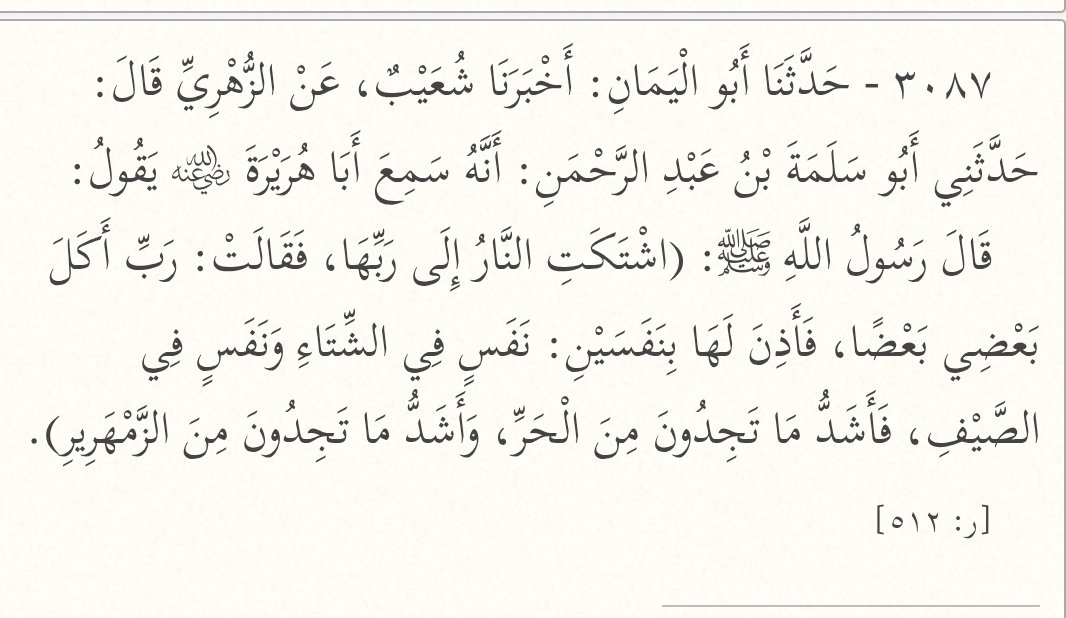 ٣٠٨٧ - حَدَّثَنَا أَبُو الْيَمَانِ: أَخْبَرَنَا شُعَيْبٌ، عَنْ الزُّهْرِيِّ قَالَ:
حَدَّثَنِي أَبُو سَلَمَةَ بْنُ عَبْدِ الرَّحْمَنِ: أَنَّهُ سَمِعَ أَبَا هُرَيْرَةَ رضي الله عنه يَقُولُ:
قَالَ رَسُولُ اللَّهِ ﷺ: (اشْتَكَتِ النَّارُ إِلَى رَبِّهَا، فَقَالَتْ: رَبِّ أَكَلَ
بَعْضِي بَعْضًا، فَأَذِنَ لَهَا بِنَفَسَيْنِ: نَفَسٍ فِي الشِّتَاءِ وَنَفَسٍ فِي
الصَّيْفِ، فَأَشَدُّ مَا تَجِدُونَ مِنَ الْحَرِّ، وَأَشَدُّ مَا تَجِدُونَ مِنَ الزَّمْهَرِيرِ).
[ر: ٥١٢]